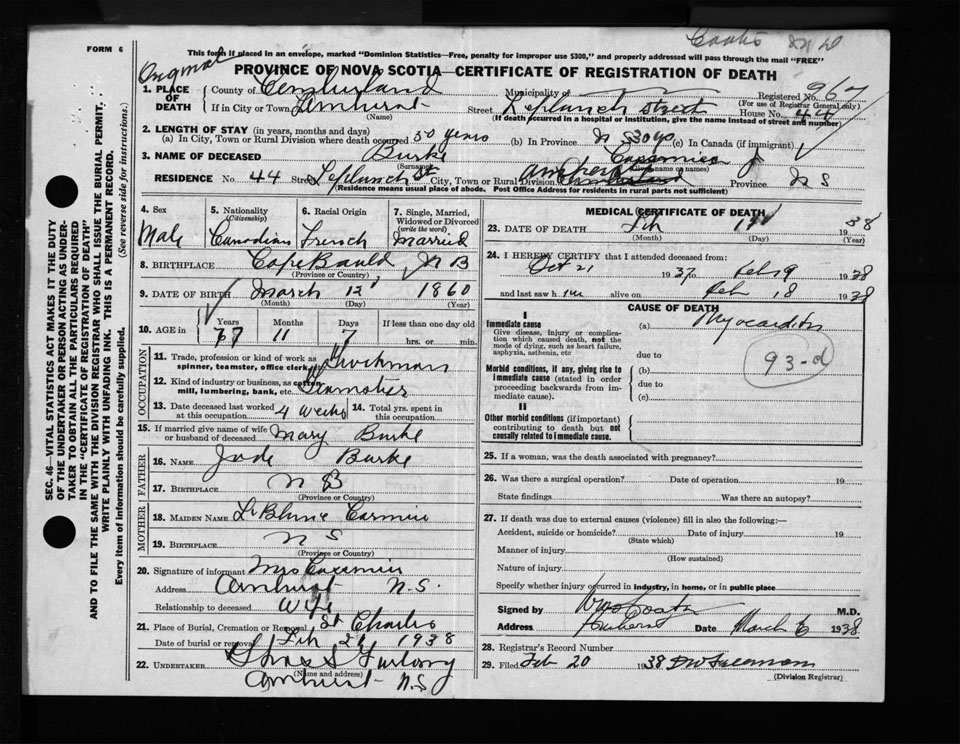 Coates
FORM 6
This form if placed in an envelope, marked "Dominion Statistics—Free, penalty for improper use $300," and properly addressed will pass through the mail "FREE"
Original
PROVINCE OF NOVA SCOTIA—CERTIFICATE OF REGISTRATION OF DEATH
1. PLACE OF DEATH
County of Cumberland Municipality of Registered No. 967
(For use of Registrar General only)
If in City or Town Amherst Street Leplanch Street House No. 44
(Name) (If death occurred in a hospital or institution, give the name instead of street and number)
2. LENGTH OF STAY (in years, months and days)
(a) In City, Town or Rural Division where death occurred 30 years (b) In Province 30 yrs (c) In Canada (if immigrant)
3. NAME OF DECEASED Burke Casamier J
(Surname) (Given name or names)
RESIDENCE No. 44 Street Leplanch St City, Town or Rural Division Amherst Cumberland Province N S
(Residence means usual place of abode. Post Office Address for residents in rural parts not sufficient)
SEC. 46—VITAL STATISTICS ACT MAKES IT THE DUTY
OF THE UNDERTAKER OR PERSON ACTING AS UNDERTAKER TO OBTAIN ALL THE PARTICULARS REQUIRED
IN THE "CERTIFICATE OF REGISTRATION OF DEATH"
AND TO FILE THE SAME WITH THE DIVISION REGISTRAR WHO SHALL ISSUE THE BURIAL PERMIT.
WRITE PLAINLY WITH UNFADING INK. THIS IS A PERMANENT RECORD.
Every item of information should be carefully supplied. (See reverse side for instructions.)
4. Sex 5. Nationality (Citizenship) 6. Racial Origin 7. Single, Married, Widowed or Divorced (write the word)
Male Canadian French Married
8. BIRTHPLACE Cape Bauld N B
(Province or Country)
9. DATE OF BIRTH March 12 1860
(Month) (Day) (Year)
10. AGE in Years Months Days If less than one day old
77 11 7 hrs. or min.
OCCUPATION
11. Trade, profession or kind of work as spinner, teamster, office clerk, Workman
12. Kind of industry or business, as cotton mill, lumbering, bank, etc.
13. Date deceased last worked at this occupation 4 weeks 14. Total yrs. spent in this occupation
15. If married give name of wife or husband of deceased Mary Burke
FATHER
16. NAME Jude Burke
17. BIRTHPLACE N B
(Province or Country)
MOTHER
18. MAIDEN NAME
19. BIRTHPLACE N S
(Province or Country)
20. Signature of informant Mrs Casamier
Address Amherst N.S.
Relationship to deceased Wife
21. Place of Burial, Cremation or Removal St Charles
Date of burial or removal Feb 21 1938
22. UNDERTAKER Furlong
(Name and address)
Amherst N.S
MEDICAL CERTIFICATE OF DEATH
23. DATE OF DEATH Feb 1938
(Month) (Day) (Year)
24. I HEREBY CERTIFY that I attended deceased from:
Oct 21 1937 to Feb 19 1938
and last saw him alive on Feb 18 1938
CAUSE OF DEATH
I
Immediate cause (a) Myocarditis
Give disease, injury or complication which caused death, not the mode of dying, such as heart failure, asphyxia, asthenia, etc
due to
93-d
Morbid conditions, if any, giving rise to immediate cause (stated in order proceeding backwards from immediate cause).
(b)
due to
(c)
II
Other morbid conditions (if important) contributing to death but not causally related to immediate cause.
25. If a woman, was the death associated with pregnancy?
26. Was there a surgical operation? Date of operation 193
State findings Was there an autopsy?
27. If death was due to external causes (violence) fill in also the following:—
Accident, suicide or homicide? Date of injury 19
(State which)
Manner of injury
(How sustained)
Nature of injury
Specify whether injury occurred in industry, in home, or in public place
Signed by M.D.
Address Amherst Date March 6 1938
28. Registrar's Record Number
29. Filed Feb 20 1938
(Division Registrar)